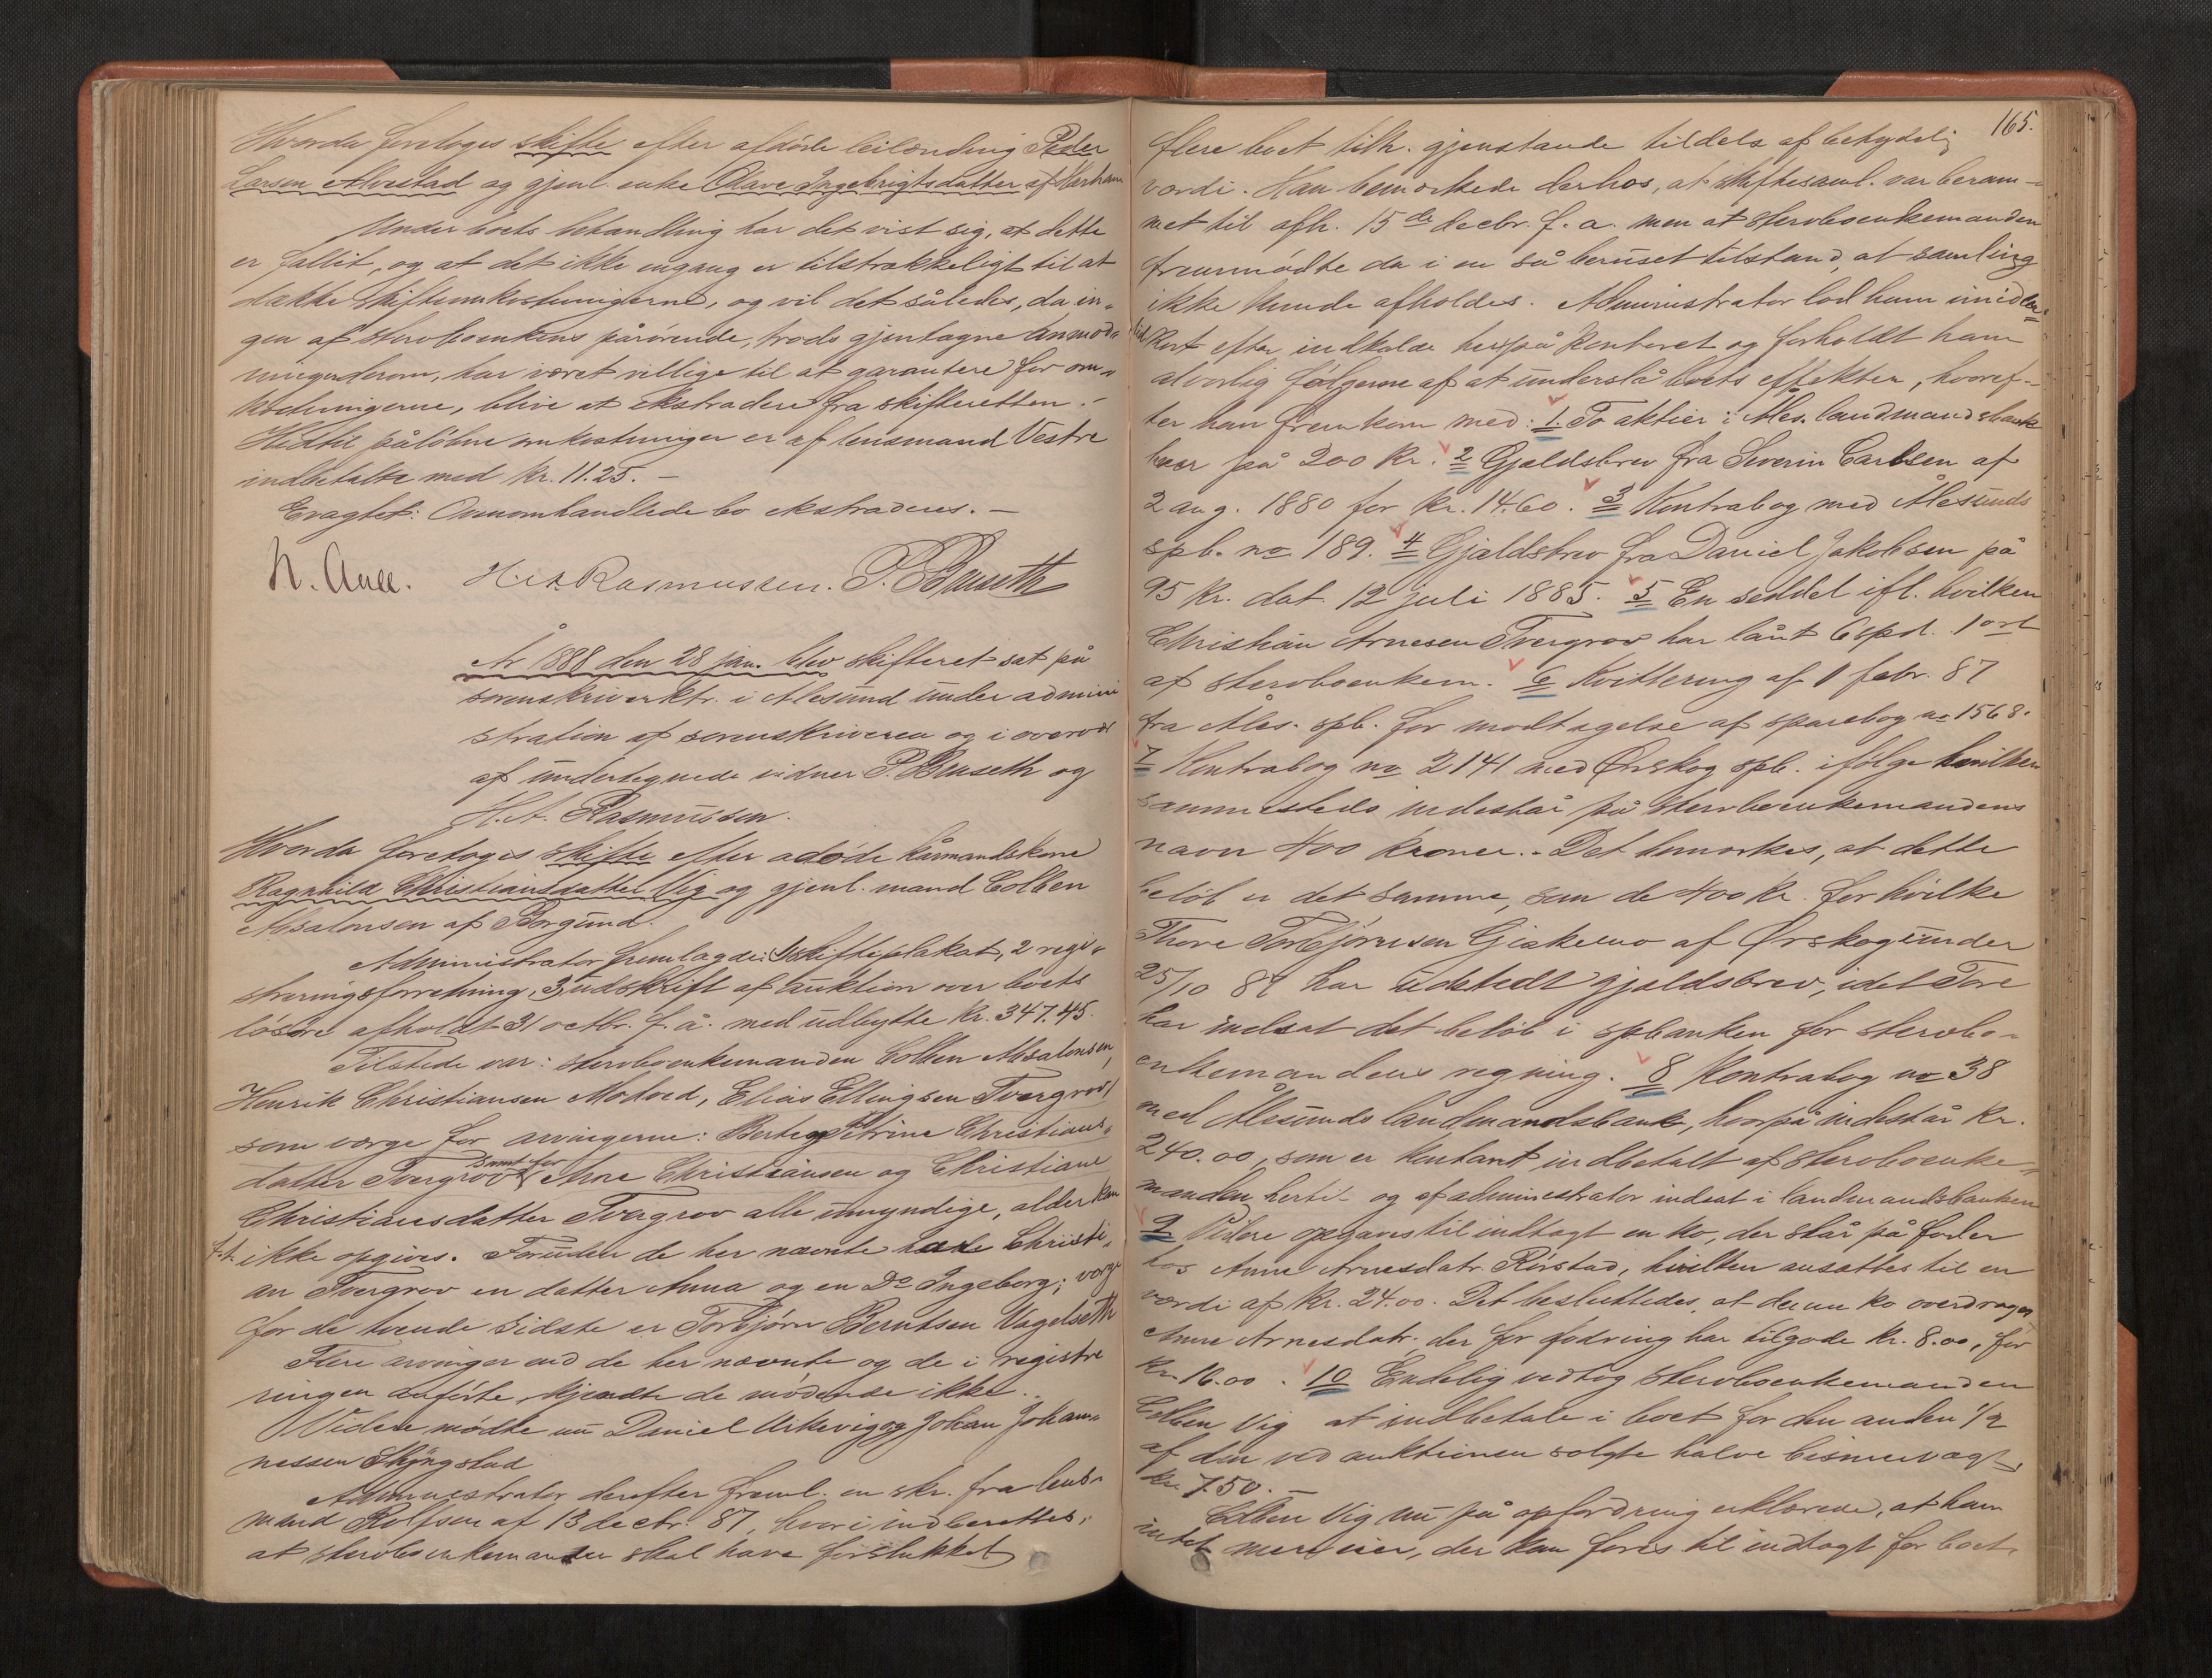 Hvorda foretoges skifte efter afdöde leilænding Peder
Larsen Alvestad og gjenl. enke Olave Ingebrigtsdatter af Harham
Under boets behandling har det vist sig, at dette
er fallit, og at det ikke engang er tilstrækkeligt til at
dække skifteomkostningerne, og vil det således, da in-
gen af stervboenkens pårørende, trods gjentagne anmod-
ninger derom, har været villige til at garantere for om-
kostningerne, blive at ekstradere fra skifteretten.-
Hidtil påløbne omkostninger er af lensmand Vestre
indbetalte med kr. 11.25.-
Eragtet: Omhandlede bo ekstraderes.-
N. Aall. H. A. Rasmussen. P. Bruseth
År 1888 den 28 jan. blev skifteret sat på
sorenskriverktr. i Ålesund under admini
stration af sorenskriveren og i overvær
af undertegnede vidner P. Bruseth og
H. A. Rasmussen.
Hvorda foretoges skifte efter adöde kårmandskone
Ragnhild Christiansdatter Vig og gjenl. mand Colben
Absalonsen af Borgund.
Administrator fremlagde: 1 skifteplakat, 2 regi-
streringsforretning, 3, udskrift af auktion over boets
lösöre afholdt 31 octbr. f. å. med udbytte kr. 347.45.
Tilstede var: stervboenkemanden Colben Absalonsen,
Henrik Christiansen Molvær, Elias Ellingsen Tvergrov,
som værge for arvingerne: Berte Petrine Christians-
datter Tvergrov samt for Arne Christiansen og Christiane
Christiansdatter Tvergrov alle umyndige, alder kan
f. t. ikke opgives. Foruden de her nævnte havde Christi-
an Tvergrov en datter Anna og en Do Ingeborg; værge
for de tvende sidste er Torbjørn Berntsen Vagelseth
Flere arvinger end de her nævnte og de i registre
ringen anførte, kjendte de mödende ikke.
Videre mødte nu Daniel Urkevig og Johan Johan-
nessen Slyngstad
Administrator derefter freml. en skr. fra lens-
mand Rolfsen af 13 decbr. 87, hvori indberettes,
at stervboenkemanden skal have forstukket
165.
flere boet tilh. gjenstande tildels af betydelig
værdi. Han bemærkede derhos, at skiftesaml. var beram-
met til afh. 15de decbr. f. a. men at stervboenkemanden
fremmødte da i en så beruset tilstand, at samling
ikke kunde afholdes. Administrator lod ham imidler-
tid kort efter indkalde hid på kontoret og forholdt ham
alvorlig følgerne af at underslå boets effekter, hvoref-
ter han fremkom med: 1. To aktier i Åles. landmandsbank
hver på 200 kr. 2 Gjældsbrev fra Severin Carlsen af
2 aug. 1880 for kr. 14.60. 3 Kontrabog med Ålesunds
spb. no 189. 4 Gjældsbrev fra Daniel Jakobsen på
95 kr. dat. 12 juli 1885. 5 En seddel ifl. hvilken
Christian Arnesen Tvergrov har lånt 6 spd. 1 ort
af stervboenkem. 6 Kvittering af 1 febr. 87
fra Åles. spb. for modtagelse af sparebog no 1568.
7 Kontrabog no 2141 med Ørskog spb. ifølge hvilken
sammesteds indestår på stervboenkemandens
navn 400 kroner.- Det bemærkes, at dette
beløb er det samme, som de 400 kr. for hvilke
Thore Torbjørnsen Giskemo af Ørskog under
25/10 87 har udstedt gjældsbrev, idet Tore
har indsat det beløb i spbanken for stervbo-
enkemandens regning. 8 Kontrabog no 38
med Ålesunds landmandsbank, hvorpå indestår kr.
240.00, som er kontant indbetalt af stervboenke-
manden hertil og af administrator indsat i landmandsbanken
9 Videre opgaves til indtægt en ko, der står på foder
hos Anne Arnesdatr. Rörstad, hvilken ansattes til en
værdi af kr. 24.00. Det besluttedes, at denne ko overdrages
Anne Arnesdatr. der for fodring har tilgode kr. 8.00, for
kr. 16.00. 10 Endelig vedtog stervboenkemanden
Colben Vig at indbetale i boet for den anden 1/2
af den ved auktionen solgte halve bismervægt,
kr. 7.50.-
Colben Vig nu på opfordring erklærede, at han
intet mere eier, der kan føres til indtægt for boet.